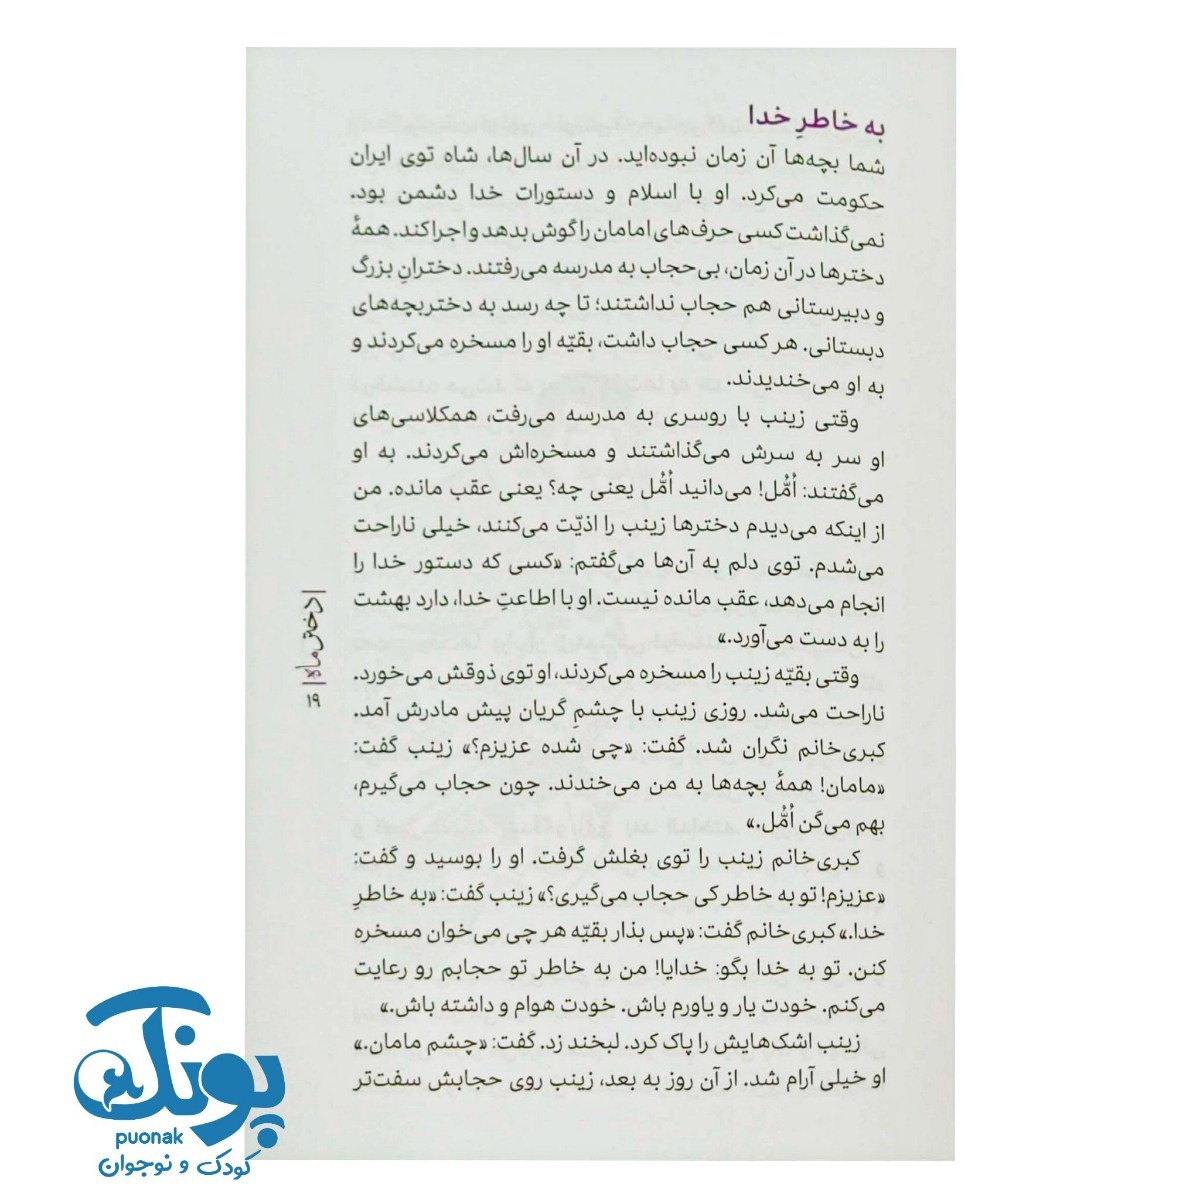 به خاطرِ خدا
شما بچه‌ها آن زمان نبوده‌اید. در آن سال‌ها، شاه توی ایران
حکومت می‌کرد. او با اسلام و دستورات خدا دشمن بود.
نمی‌گذاشت کسی حرف‌های امامان را گوش بدهد و اجرا کند. همهٔ
دخترها در آن زمان، بی‌حجاب به مدرسه می‌رفتند. دخترانِ بزرگ
و دبیرستانی هم حجاب نداشتند؛ تا چه رسد به دختربچه‌های
دبستانی. هر کسی حجاب داشت، بقیّه او را مسخره می‌کردند و
به او می‌خندیدند.
وقتی زینب با روسری به مدرسه می‌رفت، همکلاسی‌های
او سر به سرش می‌گذاشتند و مسخره‌اش می‌کردند. به او
می‌گفتند: اُمُّل! می‌دانید اُمُّل یعنی چه؟ یعنی عقب مانده. من
از اینکه می‌دیدم دخترها زینب را اذیّت می‌کنند، خیلی ناراحت
می‌شدم. توی دلم به آن‌ها می‌گفتم: «کسی که دستور خدا را
انجام می‌دهد، عقب مانده نیست. او با اطاعتِ خدا، دارد بهشت
را به دست می‌آورد.»
وقتی بقیّه زینب را مسخره می‌کردند، او توی ذوقش می‌خورد.
ناراحت می‌شد. روزی زینب با چشمِ گریان پیش مادرش آمد.
کبری‌خانم نگران شد. گفت: «چی شده عزیزم؟» زینب گفت:
«مامان! همهٔ بچه‌ها به من می‌خندند. چون حجاب می‌گیرم،
بهم می‌گن اُمُّل.»
کبری‌خانم زینب را توی بغلش گرفت. او را بوسید و گفت:
«عزیزم! تو به خاطر کی حجاب می‌گیری؟» زینب گفت: «به خاطرِ
خدا.» کبری‌خانم گفت: «پس بذار بقیّه هر چی می‌خوان مسخره
کنن. تو به خدا بگو: خدایا! من به خاطر تو حجابم رو رعایت
می‌کنم. خودت یار و یاورم باش. خودت هوام و داشته باش.»
زینب اشک‌هایش را پاک کرد. لبخند زد. گفت: «چشم مامان.»
او خیلی آرام شد. از آن روز به بعد، زینب روی حجابش سفت‌تر
|دختر ماه|
۱۹
پونک
puonak
کودک و نوجوان